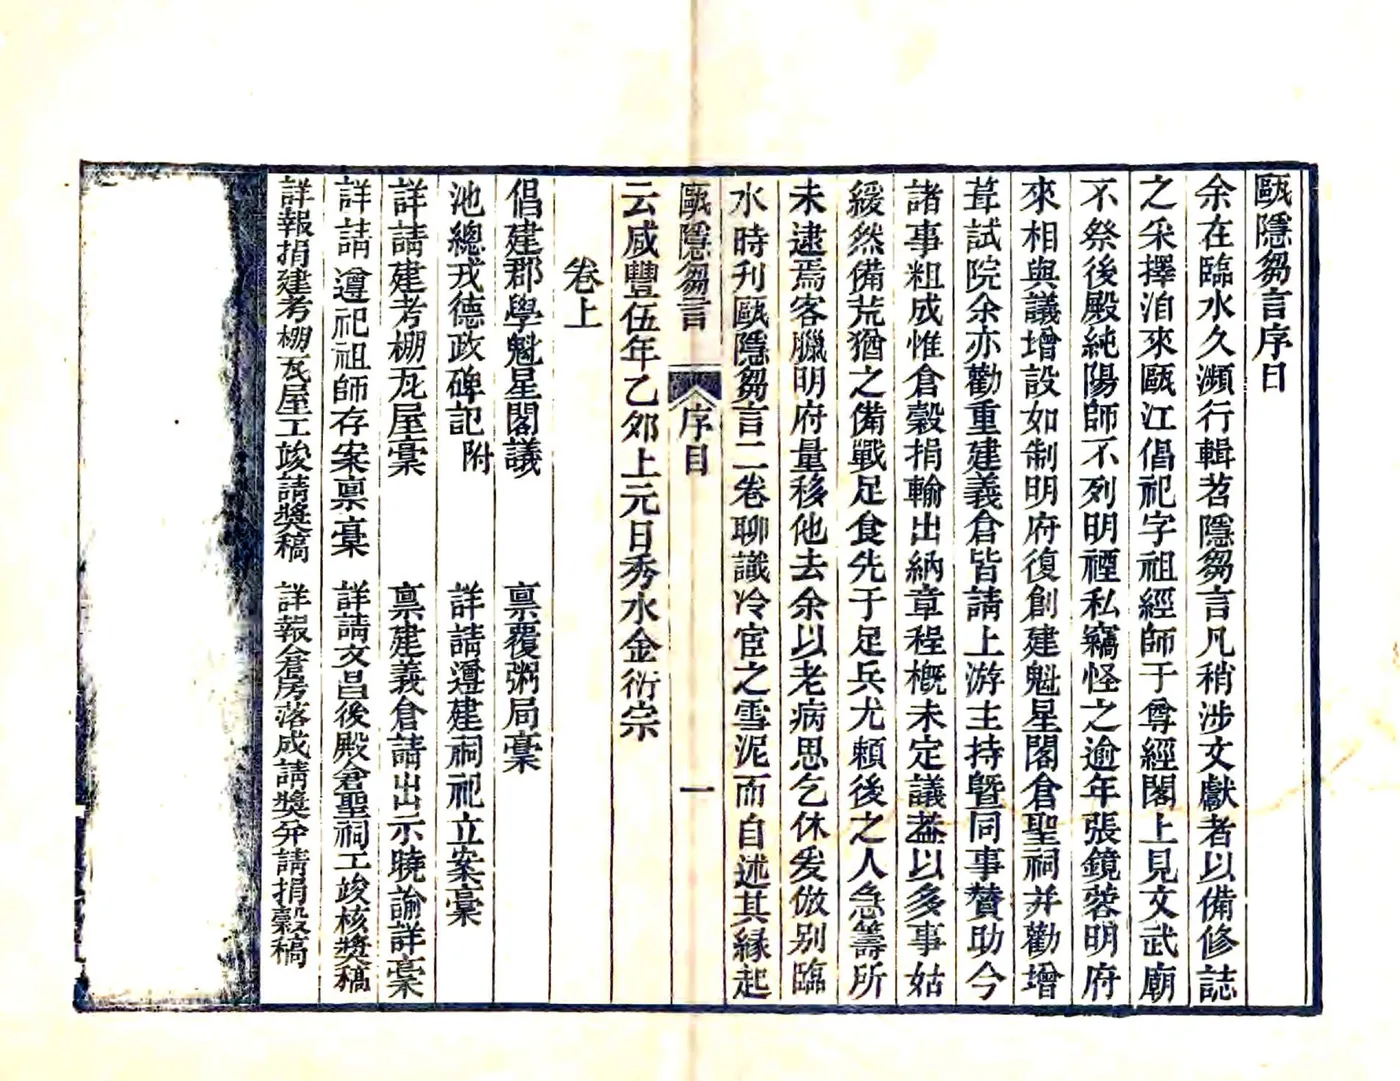 甌隱芻言序目
余在臨水久瀕行輯苕隱芻言凡稍涉文獻者以備修誌
之采擇洎來甌江倡祀字祖經師于尊經閣上見文武廟
不祭後殿純陽師不列明禋私竊怪之逾年張鏡蓉明府
來相與議增設如制明府復創建魁星閣倉聖祠并勸增
葺試院余亦勸重建義倉皆請上游主持暨同事贊助今
諸事粗成惟倉穀捐輸出納章程概未定議葢以多事姑
緩然備荒猶之備戰足食先于足兵尤賴後之人急籌所
未逮焉客臘明府量移他去余以老病思乞休爰倣别臨
水時刋甌隱芻言二卷聊識冷宦之雪泥而自述其緣起
甌隱芻言 序目 一
云咸豐伍年乙夘上元日秀水金衍宗
卷上
倡建郡學魁星閣議 禀覆粥局稾
池總戎德政碑記附 詳請遵建祠祀立案稾
詳請建考棚瓦屋稾 禀建義倉請出示曉諭詳稾
詳請遵祀祖師存案禀稾 詳請文昌後殿倉聖祠工竣核獎稿
詳報捐建考棚瓦屋工竣請獎稿 詳報倉房落成請獎并請捐穀稿